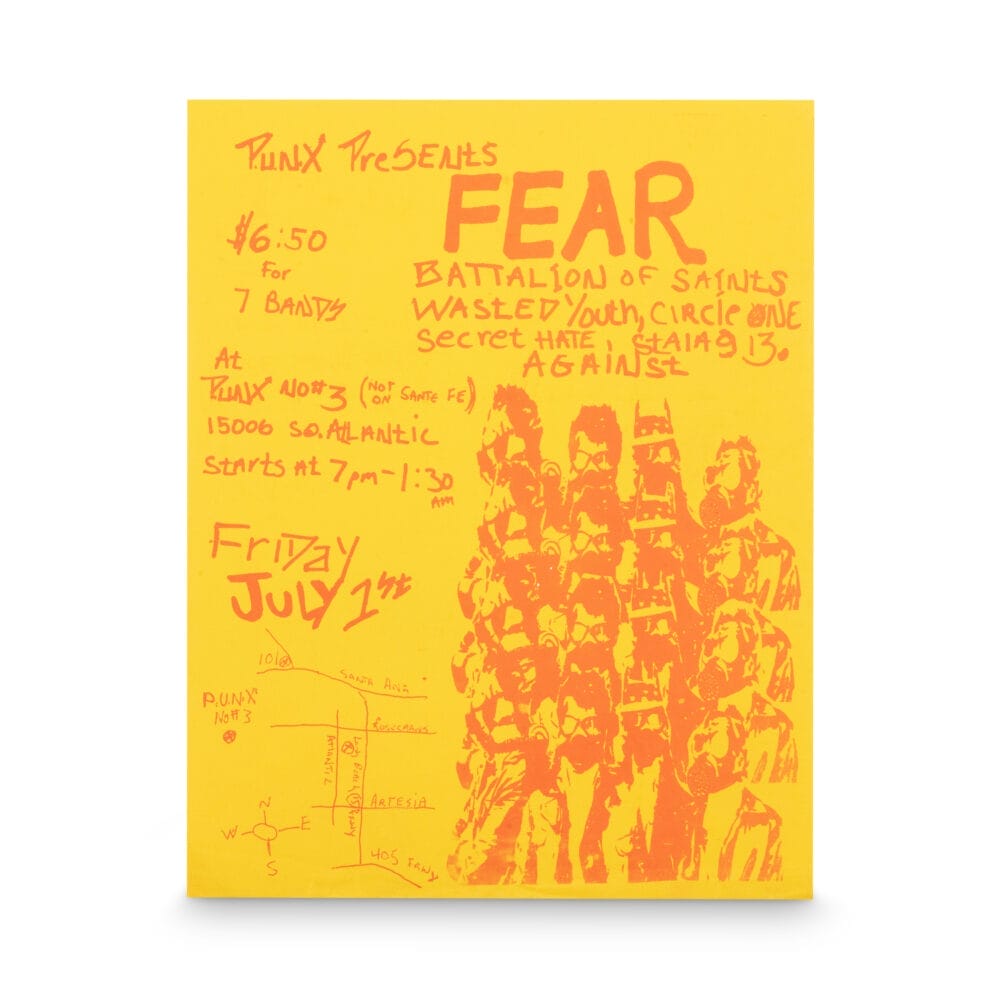 P.U.N.X PreSENtS
FEAR
BATTALION OF SAINtS
WASTED Youth, CIRCle ONE
Secret HATE, StAlAg 13.
AGAINSt
$6:50
For
7 BANDS
At
P.U.N.X NO# 3 (NOT ON SANTE FE)
15006 SO. AtLANtic
StArts At 7pm-1:30
AM
FriDay
JULY 1st
101
SANTA ANA
P.U.N.X
No# 3
ROSECRANS
ATLANTIC
ARTESIA
405 FRWY
N
W E
S